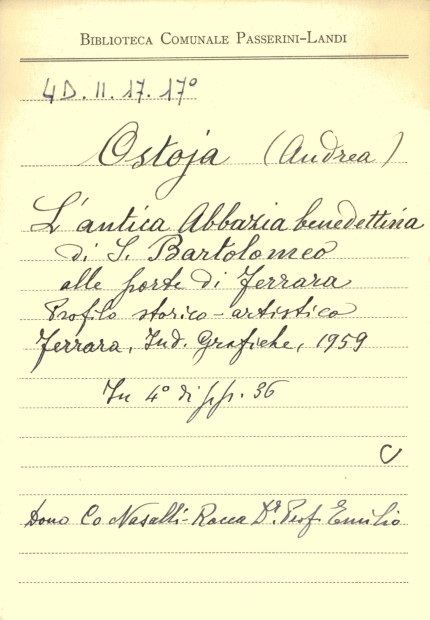 BIBLIOTECA COMUNALE PASSERINI-LANDI
4D. II. 17. 17°
Ostoja (Andrea)
L'antica Abbazia benedettina
di S. Bartolomeo
alle porte di Ferrara
Profilo storico-artistico
Ferrara, Ind. Grafiche, 1959
In 4° di pp. 36
C
Dono Co Nasalli-Rocca Dr. Prof. Emilio